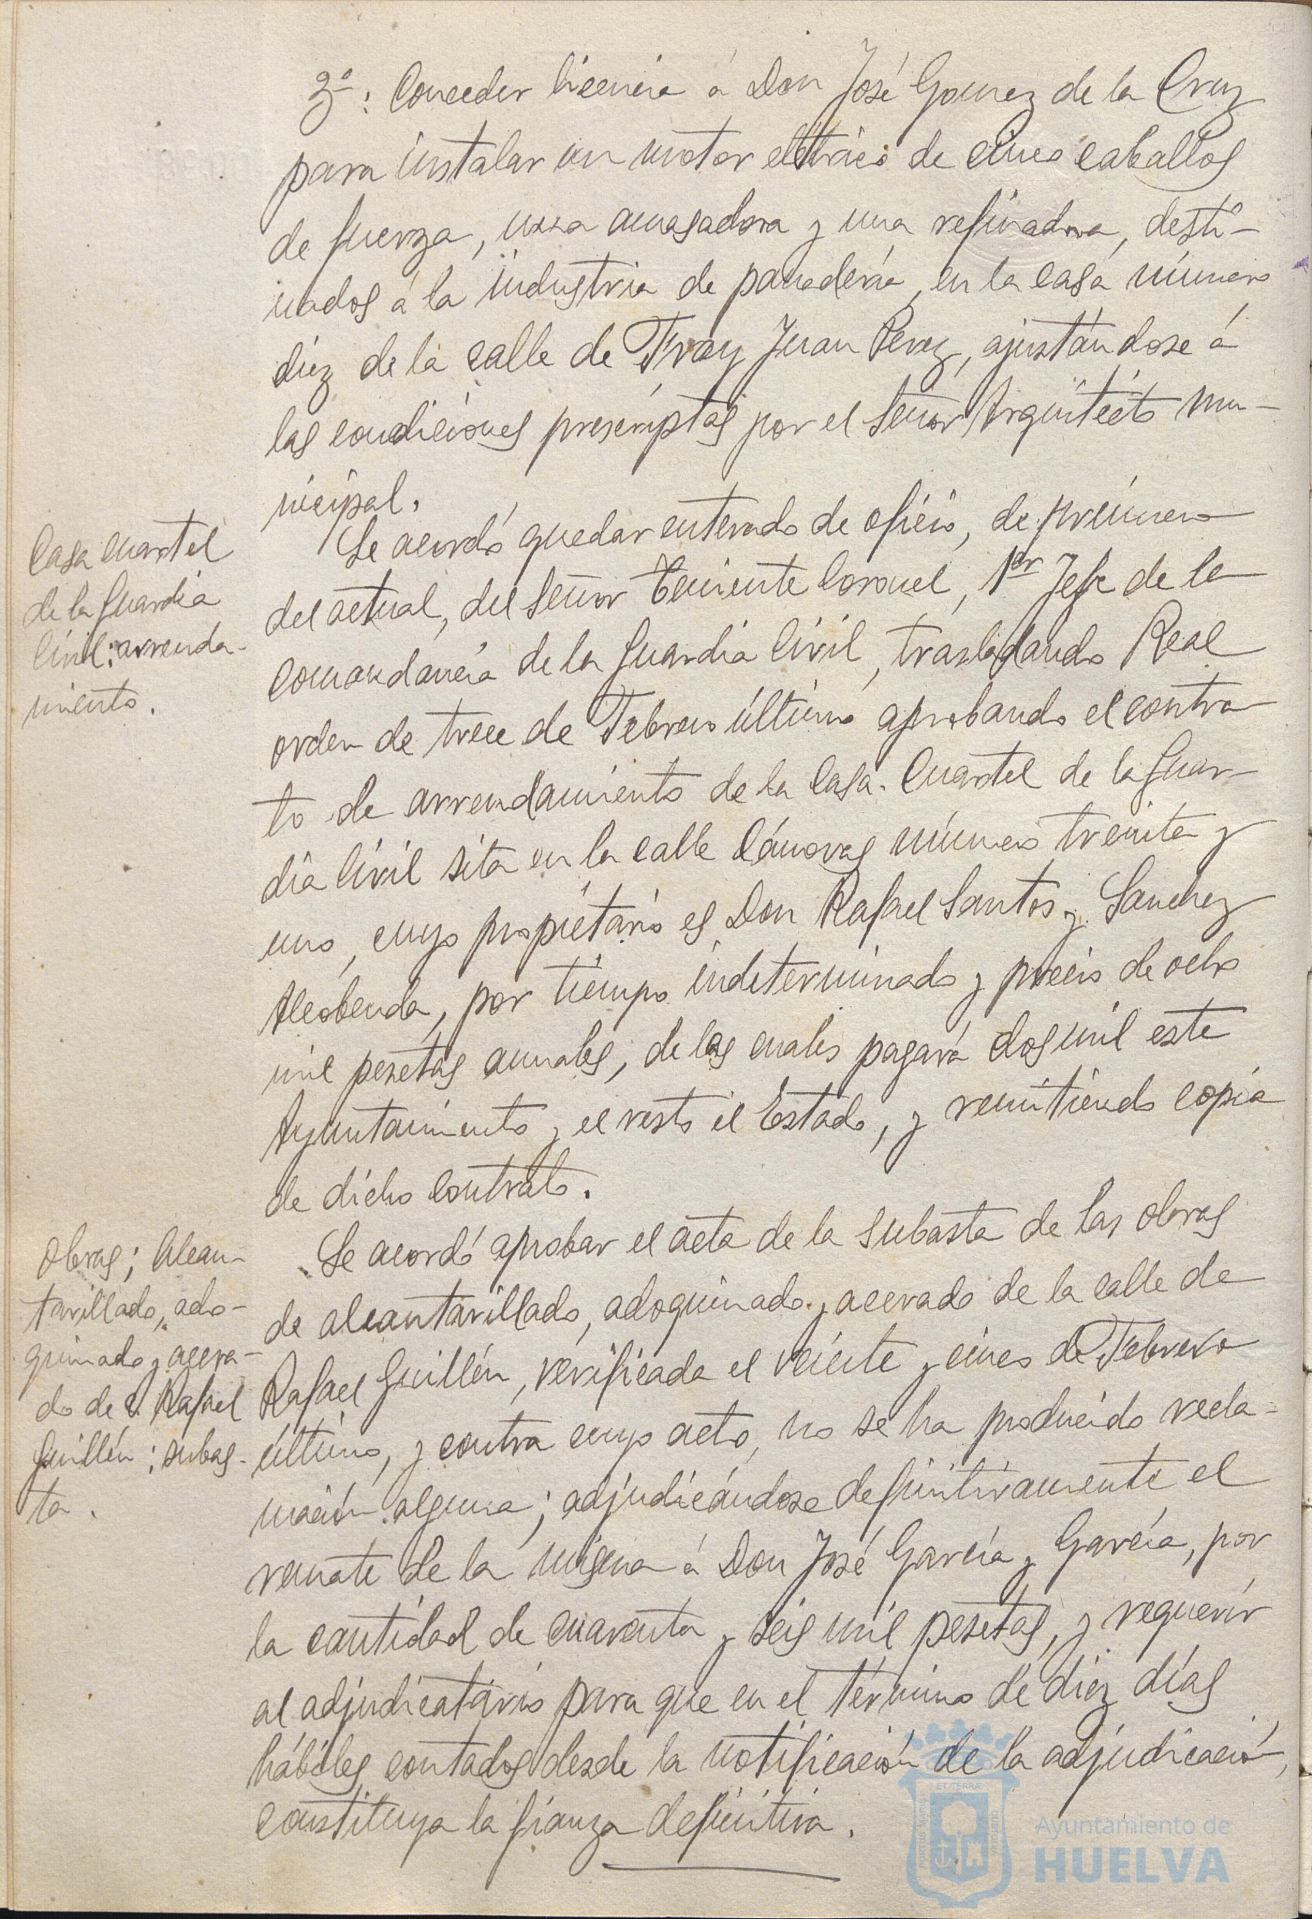 3º: Conceder licencia á Don José Gomez de la Cruz
para instalar un motor eléctrico de cinco caballos
de fuerza, una amasadora y una refinadora, desti-
nados á la industria de panadería, en la casa número
diez de la calle de Fray Juan Perez, ajustándose á
las condiciones prescriptas por el Señor Arquitecto mu-
nicipal.
Casa cuartel
de la Guardia
Civil: arrenda-
miento.
Se acordó quedar enterado de oficio, de primero
del actual, del Señor Teniente Coronel, 1er Jefe de la
Comandancia de la Guardia Civil, trasladando Real
orden de trece de Febrero último aprobando el contra
to de arrendamiento de la Casa-Cuartel de la Guar-
dia Civil sita en la calle Cánovas número treinta y
uno, cuyo propietario es Don Rafael Santos y Sanchez
Alcobenda, por tiempo indeterminado y precio de ocho
mil pesetas anuales, de las cuales pagará dos mil este
Ayuntamiento y el resto el Estado, y remitiendo copia
de dicho contrato.
Obras; Alcan-
tarillado, ado-
quinado y acera-
do de C. Rafael
Guillén; subas-
ta.
Se acordó aprobar el acta de la subasta de las obras
de alcantarillado, adoquinado y acerado de la calle de
Rafael Guillén, verificada el veinte y cinco de Febrero
último, y contra cuyo acto, no se ha producido recla-
mación alguna; adjudicándose definitivamente el
remate de la misma á Don José García y García, por
la cantidad de cuarenta y seis mil pesetas, y requerir
al adjudicatario para que en el término de diez días
hábiles contados desde la notificación de la adjudicación,
constituya la fianza definitiva.
Ayuntamiento de
HUELVA